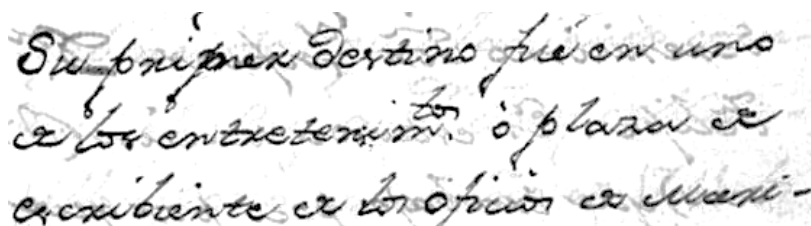 Su primer destino fué en uno
de los entretenim.tos ò plaza de
escribiente de los oficios de Mari-